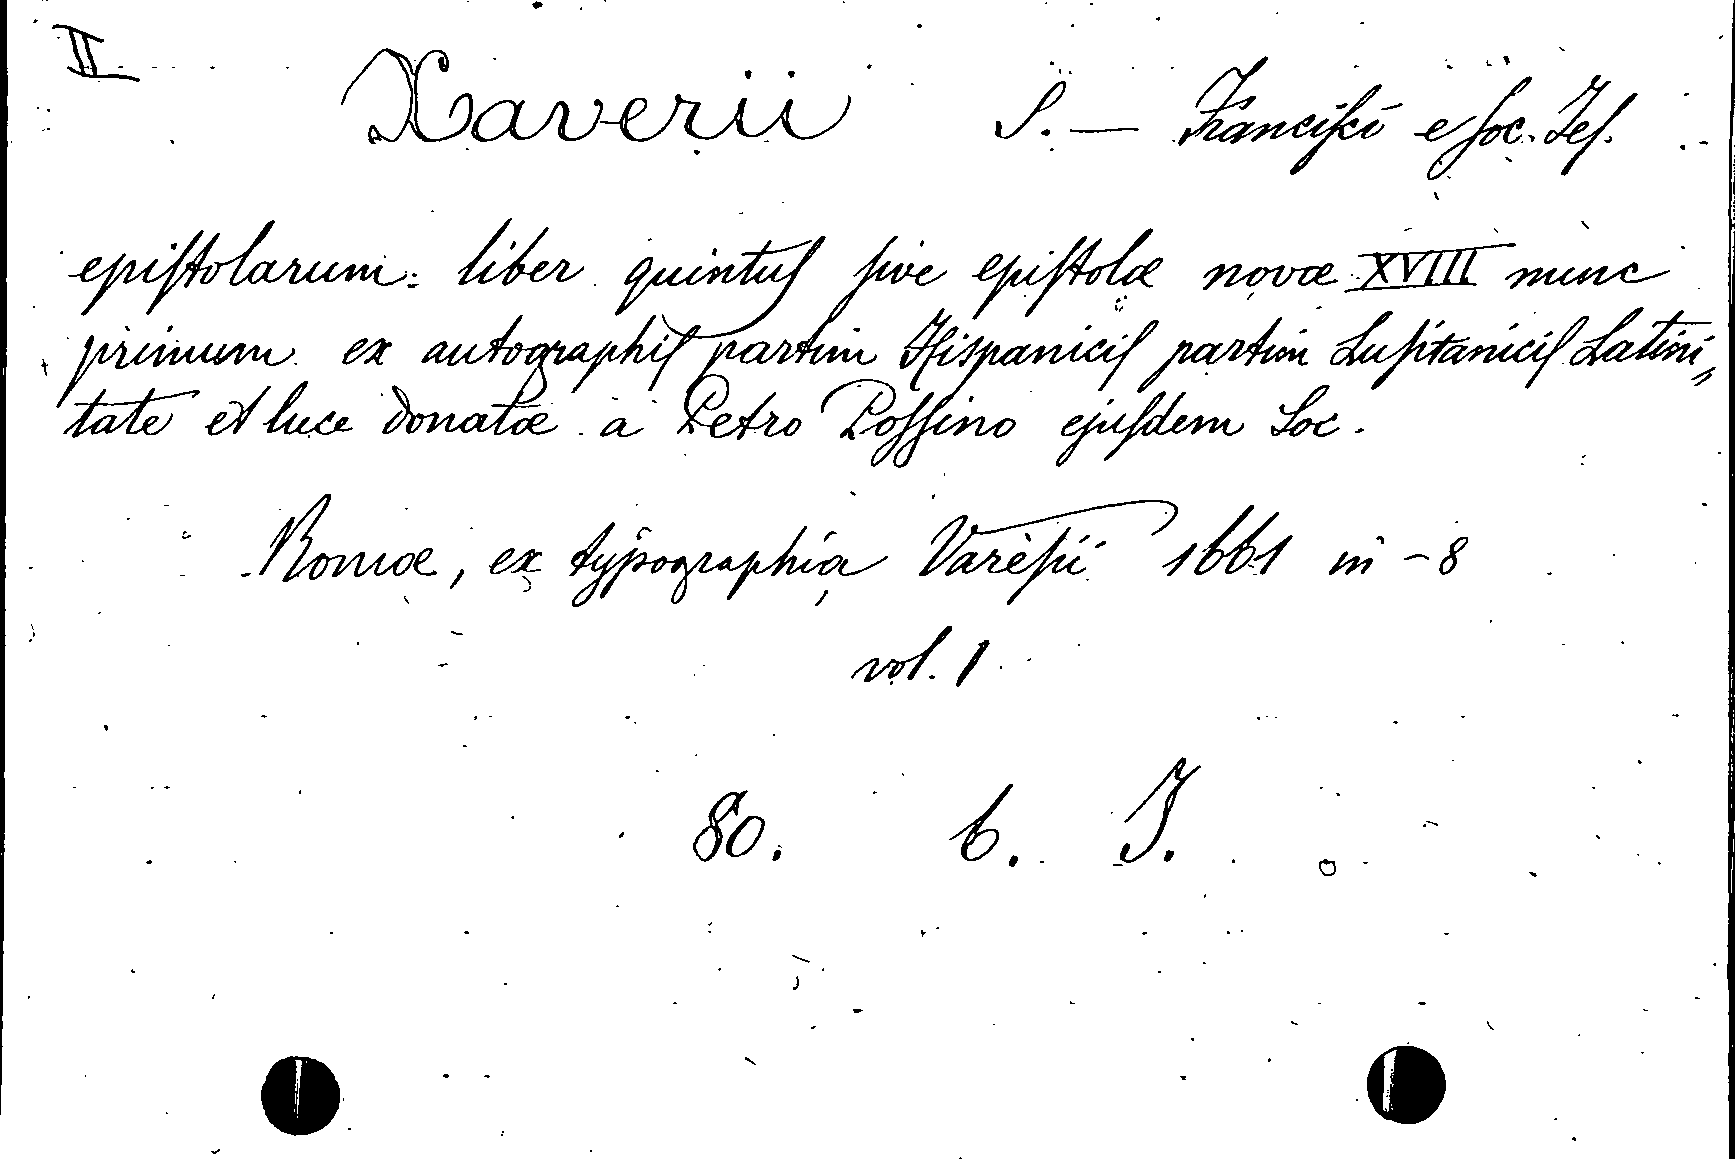 II
Xaverii S. — Franciſci e ſoc. Jeſ.
epiſtolarum: liber quintuſ ſive epiſtolæ novæ XVIII nunc
primum ex autographiſ partim Hiſpaniciſ partim Luſitaniciſ Latini„
tate et luce donatæ a Petro Poſſino ejuſdem Soc.
Romæ, ex typographia Vareſii 1661 in-8
vol. 1
80. 6. J.